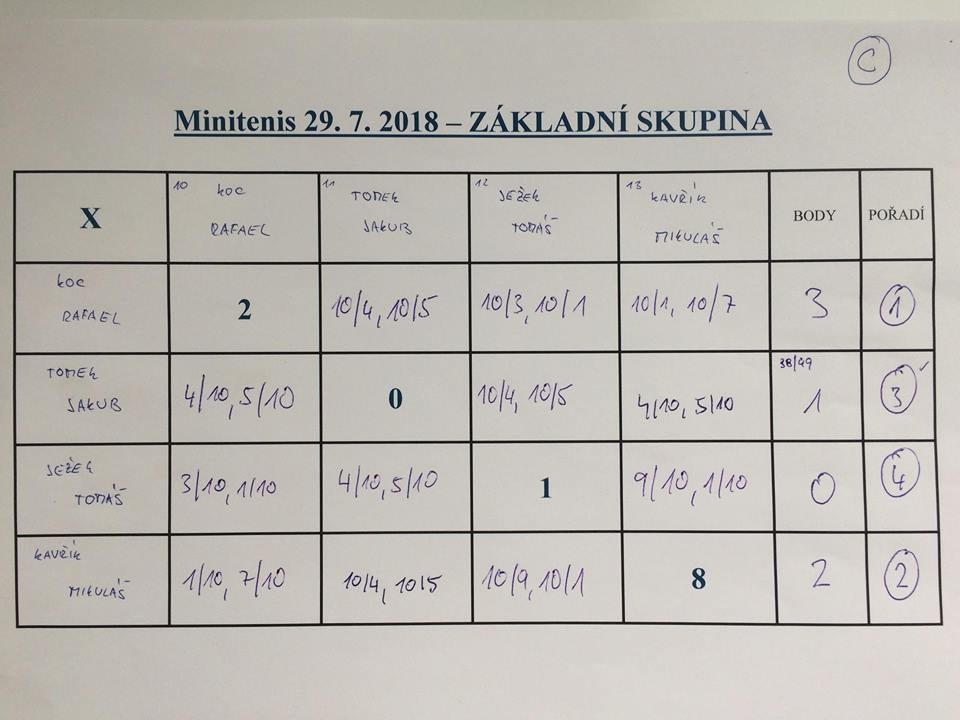 C
Minitenis 29. 7. 2018 – ZÁKLADNÍ SKUPINA
X 10 KOC RAFAEL 11 TOMEK JAKUB 12 JEŽEK TOMÁŠ 13 KAVŘÍK MIKULÁŠ BODY POŘADÍ
KOC RAFAEL 2 10/4, 10/5 10/3, 10/1 10/1, 10/7 3 1
TOMEK JAKUB 4/10, 5/10 0 10/4, 10/5 4/10, 5/10 38/49 1 3
JEŽEK TOMÁŠ 3/10, 1/10 4/10, 5/10 1 9/10, 1/10 0 4
KAVŘÍK MIKULÁŠ 1/10, 7/10 10/4, 10/5 10/9, 10/1 8 2 2